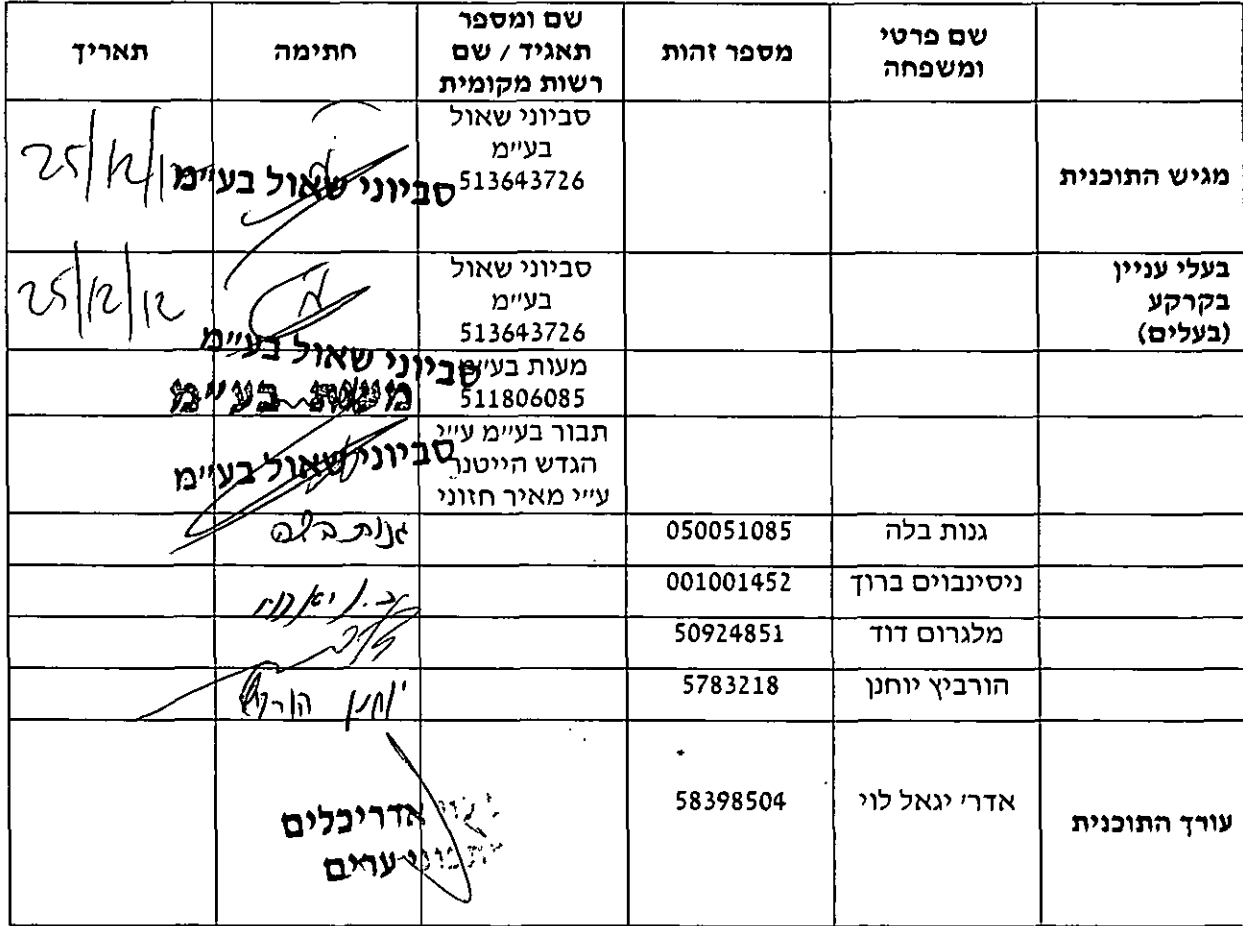 שם פרטי
ומשפחה
מספר זהות
שם ומספר
תאגיד / שם
רשות מקומית
חתימה
תאריך
מגיש התוכנית
סביוני שאול
בע"מ
513643726
סביוני שאול בע"מ
25/12/12
בעלי עניין
בקרקע
(בעלים)
סביוני שאול
בע"מ
513643726
סביוני שאול בע"מ
25/12/12
מעות בע"מ
511806085
מעות בע"מ
תבור בע"מ ע"י
הגדש הייטנר
ע"י מאיר חזוני
סביוני שאול בע"מ
גנות בלה
050051085
גנות בלה
ניסינבוים ברוך
001001452
מלגרום דוד
50924851
הורביץ יוחנן
5783218
יוחנן
עורך התוכנית
אדר' יגאל לוי
58398504
אדריכלים
ערים